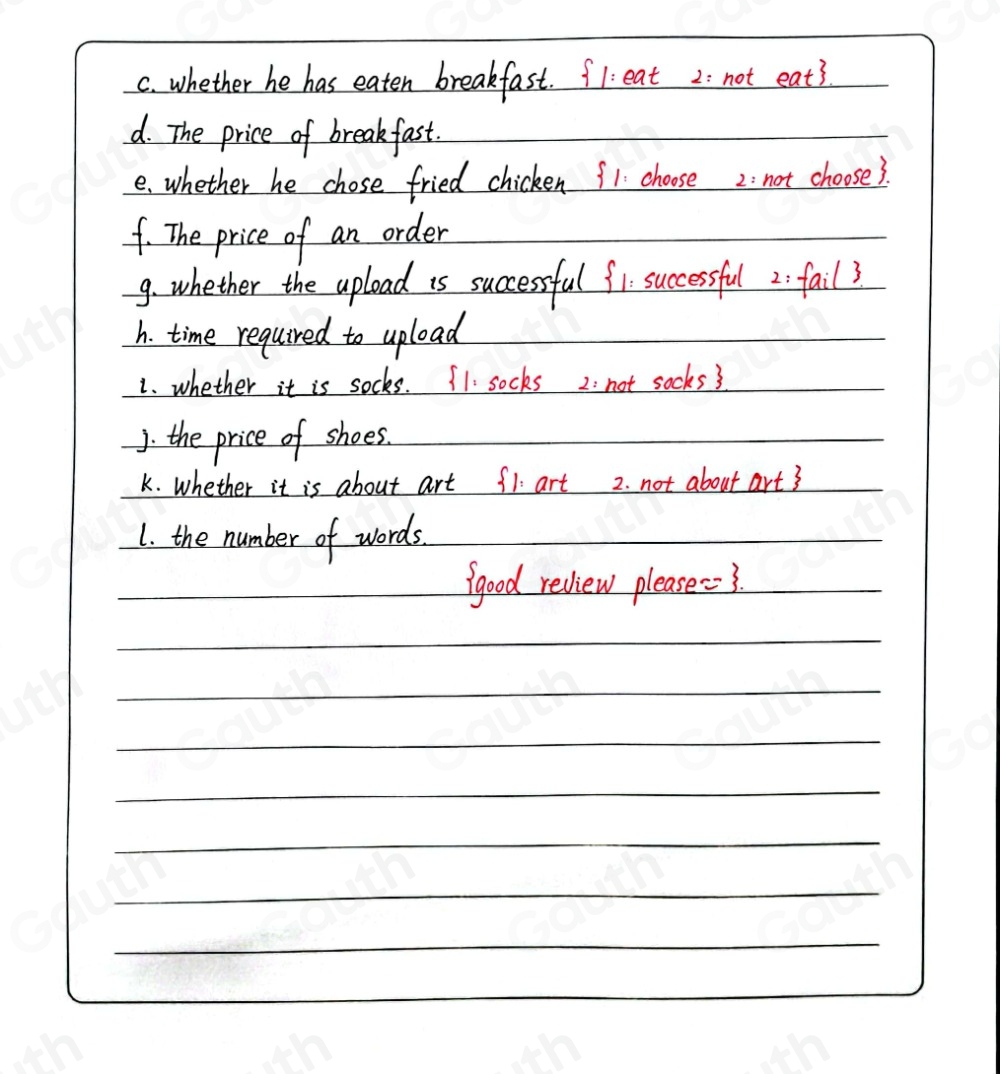 c. whether he has eaten breakfast. {1: eat 2: not eat}.
d. The price of breakfast.
e. whether he chose fried chicken {1: choose 2: not choose}.
f. The price of an order
g. whether the upload is successful {1: successful 2: fail}.
h. time required to upload
i. whether it is socks. {1: socks 2: not socks}.
j. the price of shoes.
k. Whether it is about art {1: art 2. not about art}
l. the number of words.
{good review please~~}.
Gauth